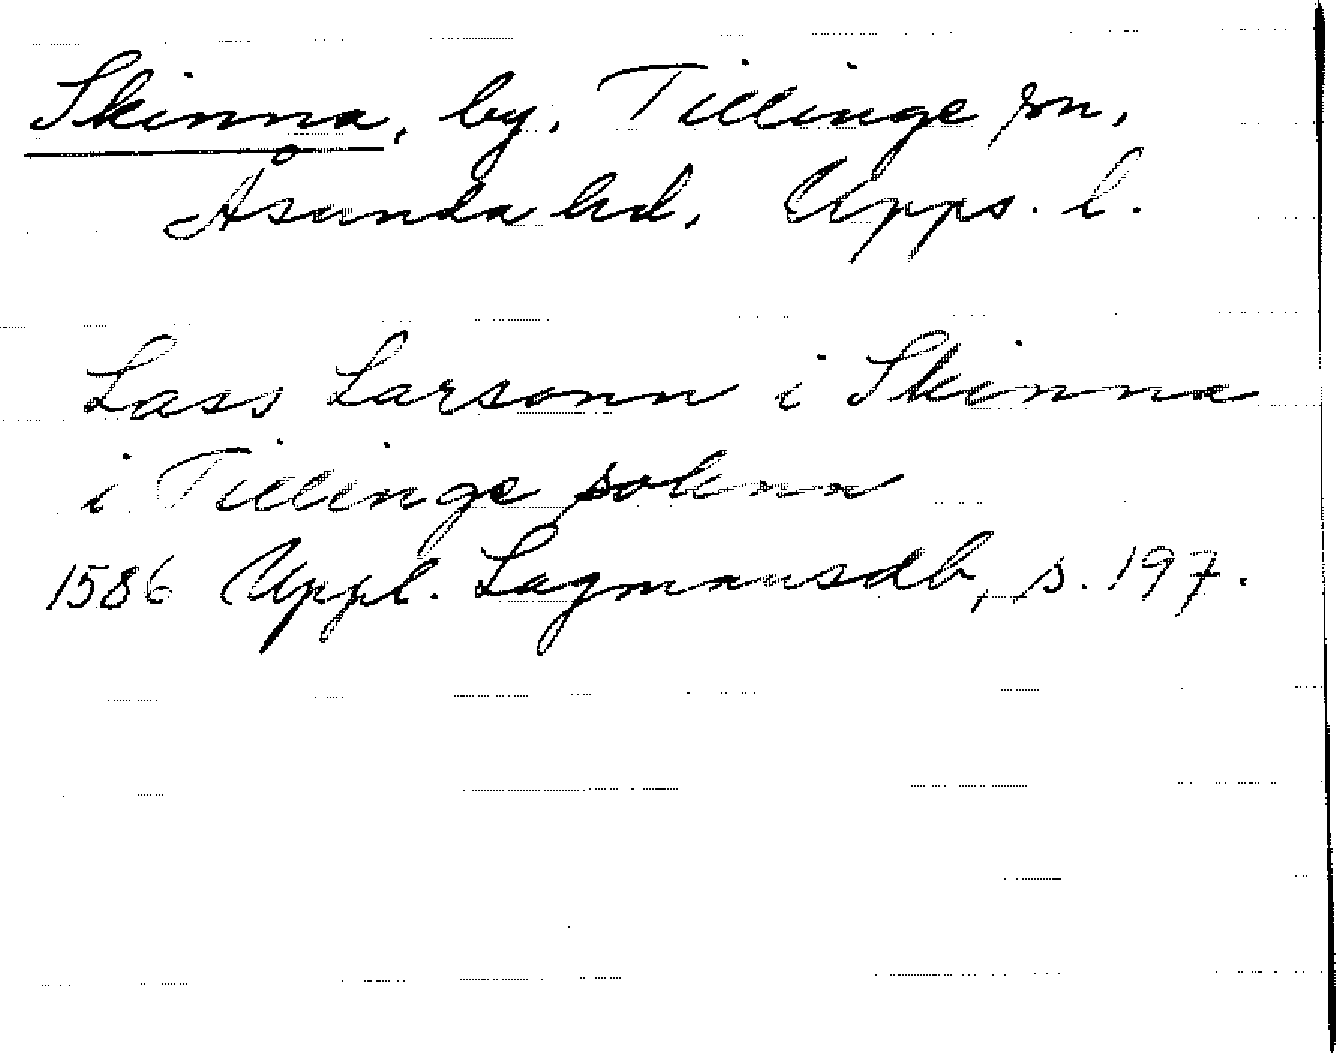 Skinna, by, Tillinge sn,
Åsunda hd, Upps. l.
Lass Larsonn i Skinna
i Tillinge soknn
1586 Uppl. Lagmansdb, s. 197.